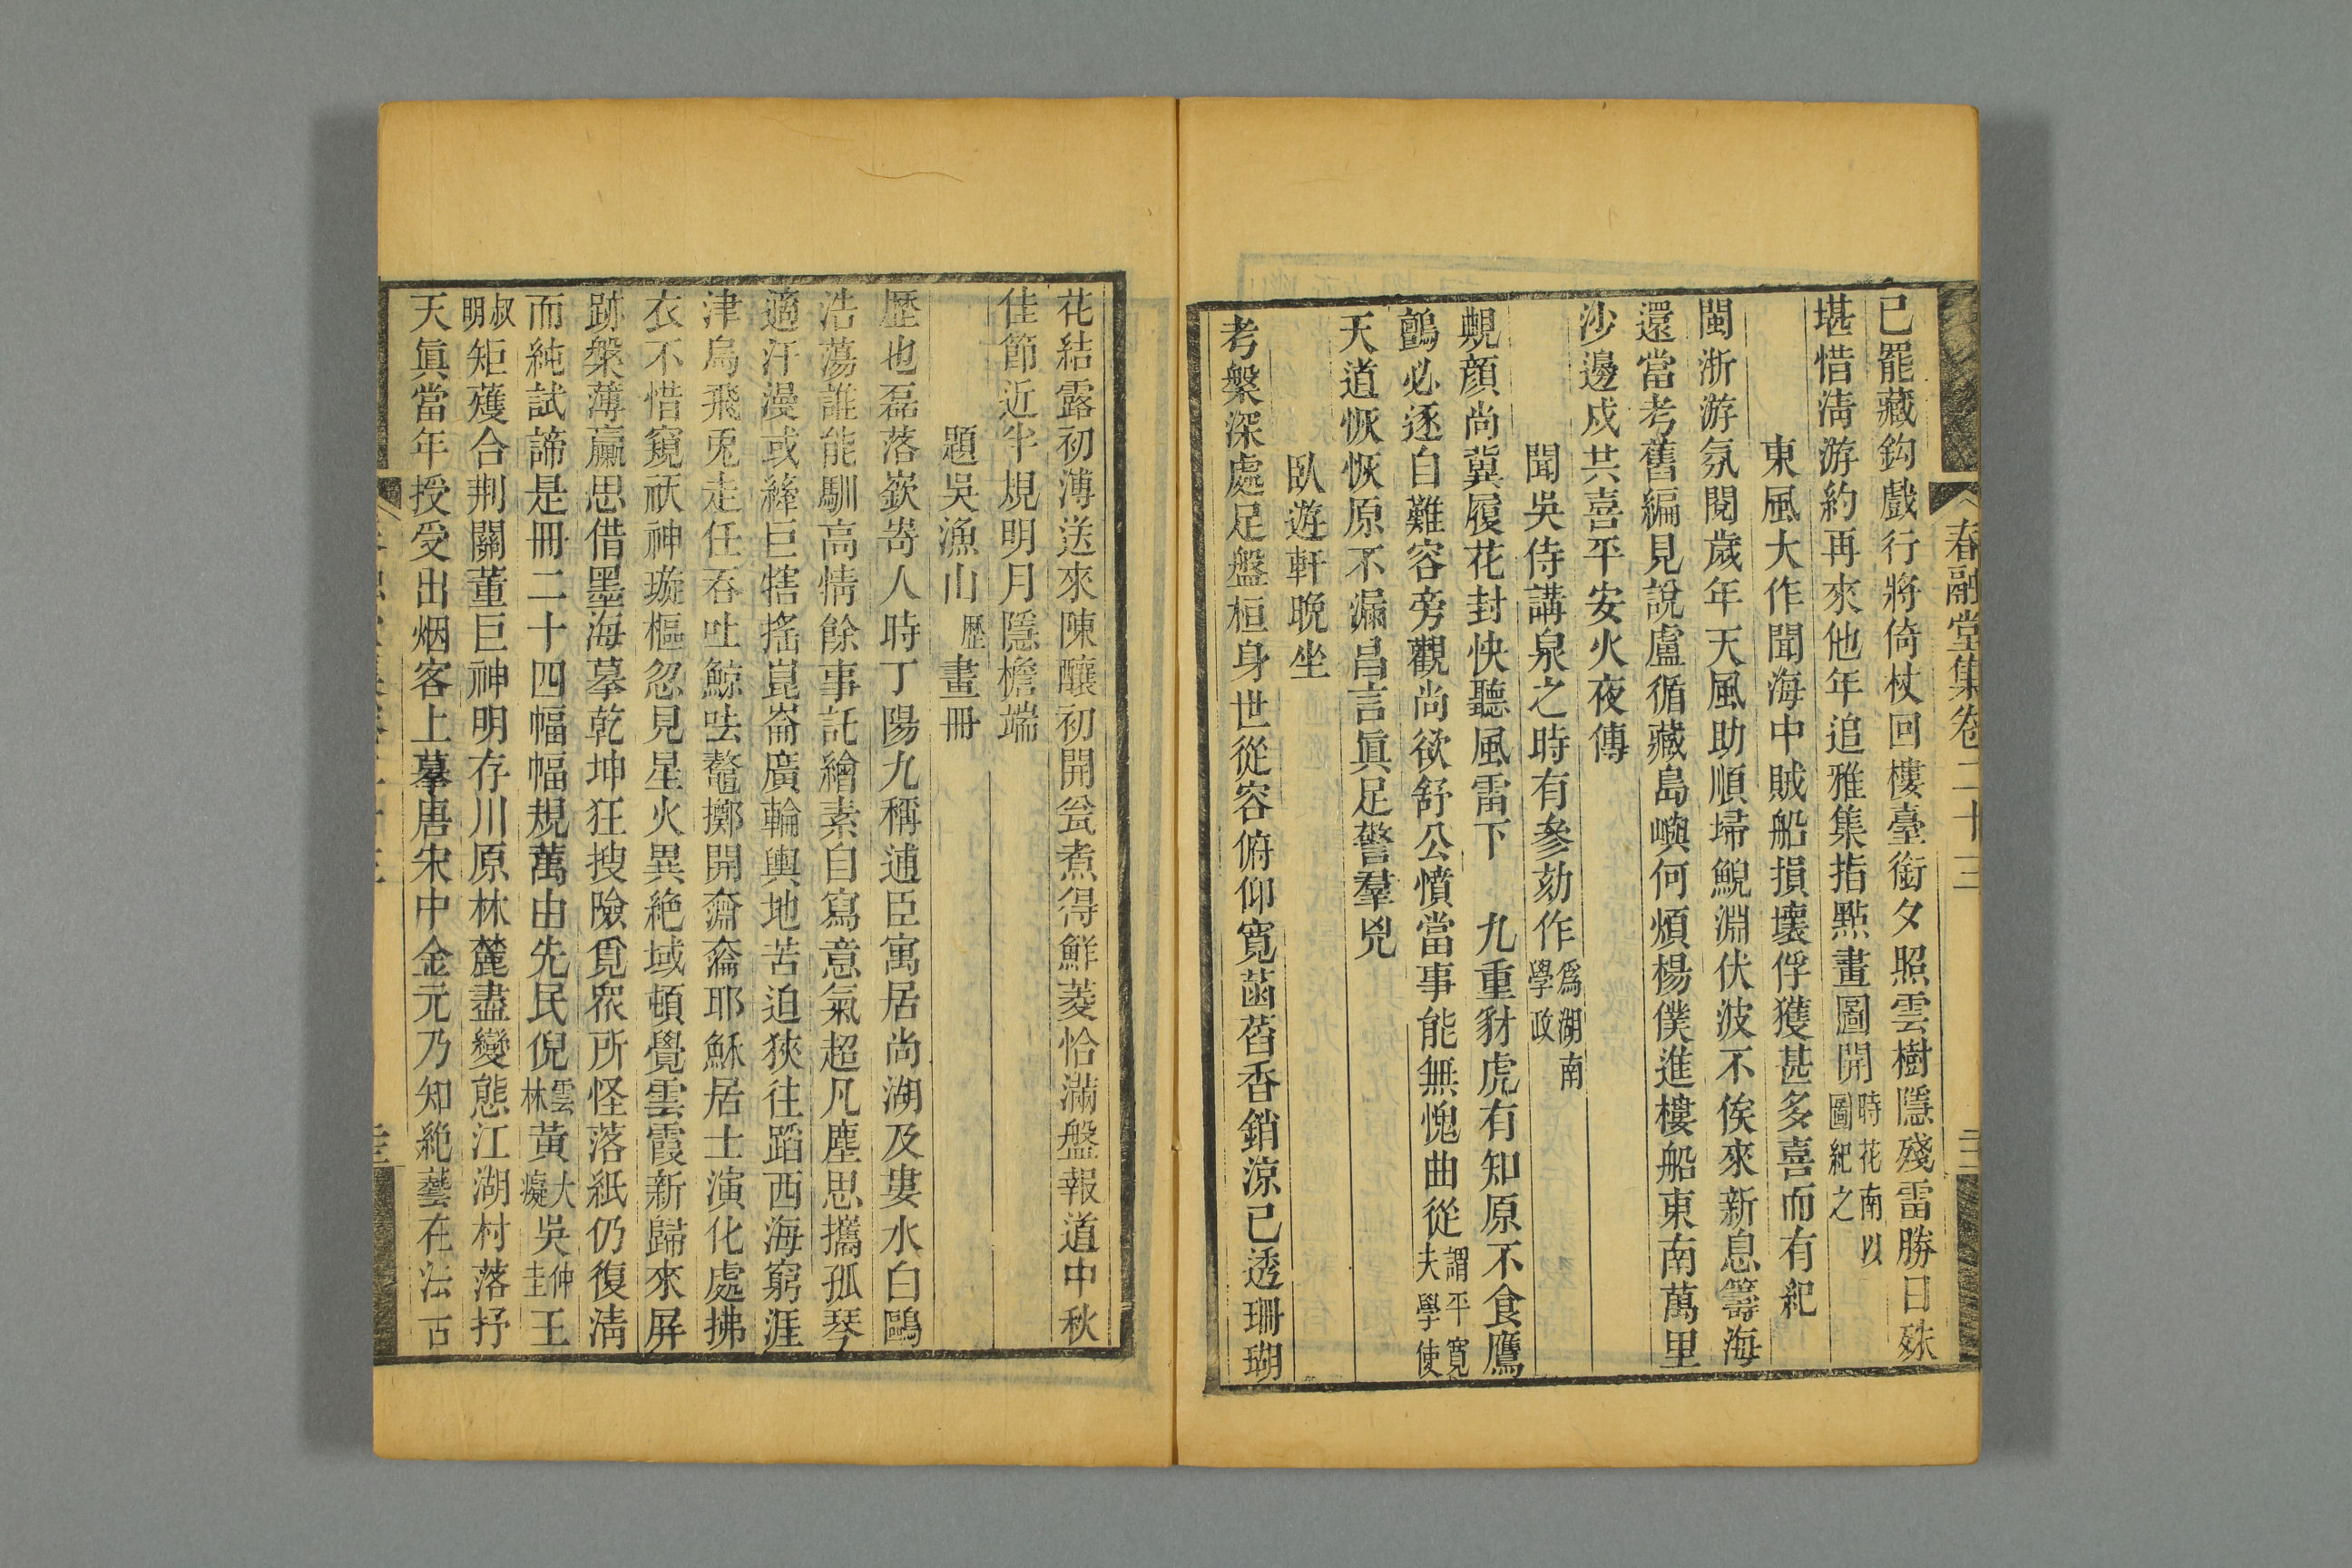 春融堂集卷二十三
已罷藏鈎戲行將倚杖回樓臺銜夕照雲樹隱殘雷勝日殊
堪惜淸游約再來他年追雅集指點畫圖開時花南以圖紀之
東風大作聞海中賊船損壞俘獲甚多喜而有紀
閩浙游氛閱歲年天風助順埽鯢淵伏波不俟來新息籌海
還當考舊編見說盧循藏島嶼何煩楊僕進樓船東南萬里
沙邊戍共喜平安火夜傳
聞吳侍講泉之時有參劾作爲湖南學政
覥顏尚冀履花封快聽風雷下九重豺虎有知原不食鷹
鸇必逐自難容旁觀尚欲舒公憤當事能無愧曲從謂平寬夫學使
天道恢恢原不漏昌言眞足警羣兇
臥遊軒晚坐
考槃深處足盤桓身世從容俯仰寬菡萏香銷涼已透珊瑚
花結露初溥送來陳釀初開瓮煮得鮮菱恰滿盤報道中秋
佳節近半規明月隱檐端
題吳漁山歷畫冊
歷也磊落嶔嵜人時丁陽九稱逋臣寓居尚湖及婁水白鷗
浩蕩誰能馴高情餘事託繪素自寫意氣超凡塵思攜孤琴
適汗漫或絳巨犗搖崑崙廣輪輿地苦迫狹往蹈西海窮涯
津烏飛兎走任吞吐鯨呿鼇擲開奫奫耶穌居士演化處拂
衣不惜窺祆神璇樞忽見星火異絶域頓覺雲霞新歸來屏
跡槃薄羸思借墨海摹乾坤狂搜險覓衆所怪落紙仍復淸
而純試諦是冊二十四幅幅規萬由先民倪雲林黃大癡吳仲圭王
叔明矩蒦合荆關董巨神明存川原林麓盡變態江湖村落抒
天眞當年授受出烟客上摹唐宋中金元乃知絶藝在法古